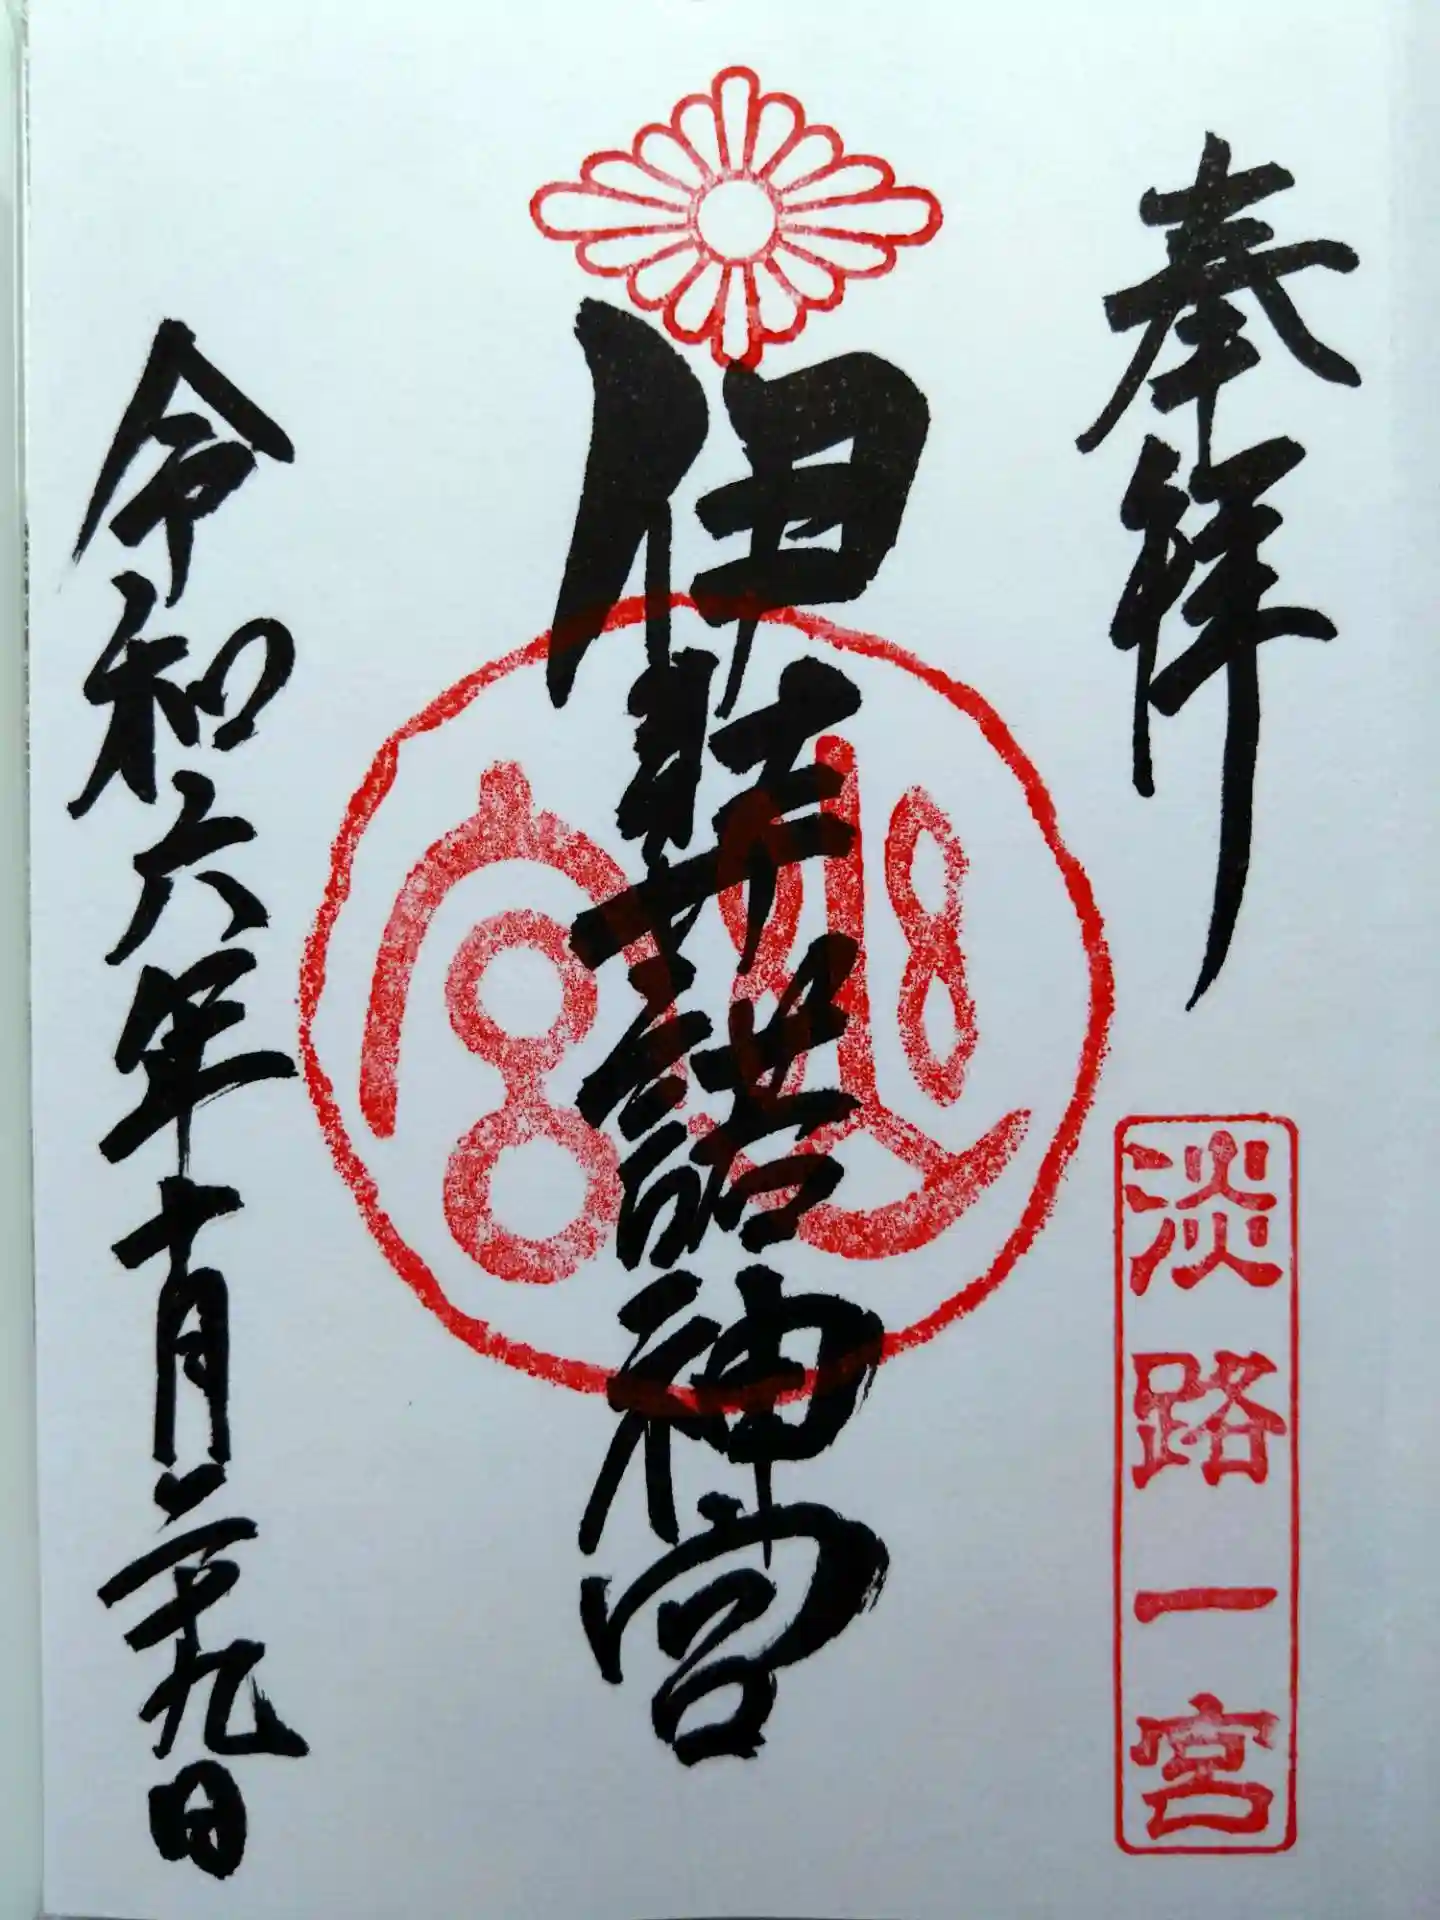 奉拝
淡路一宮
伊弉諾神宮
令和六年十月二十九日